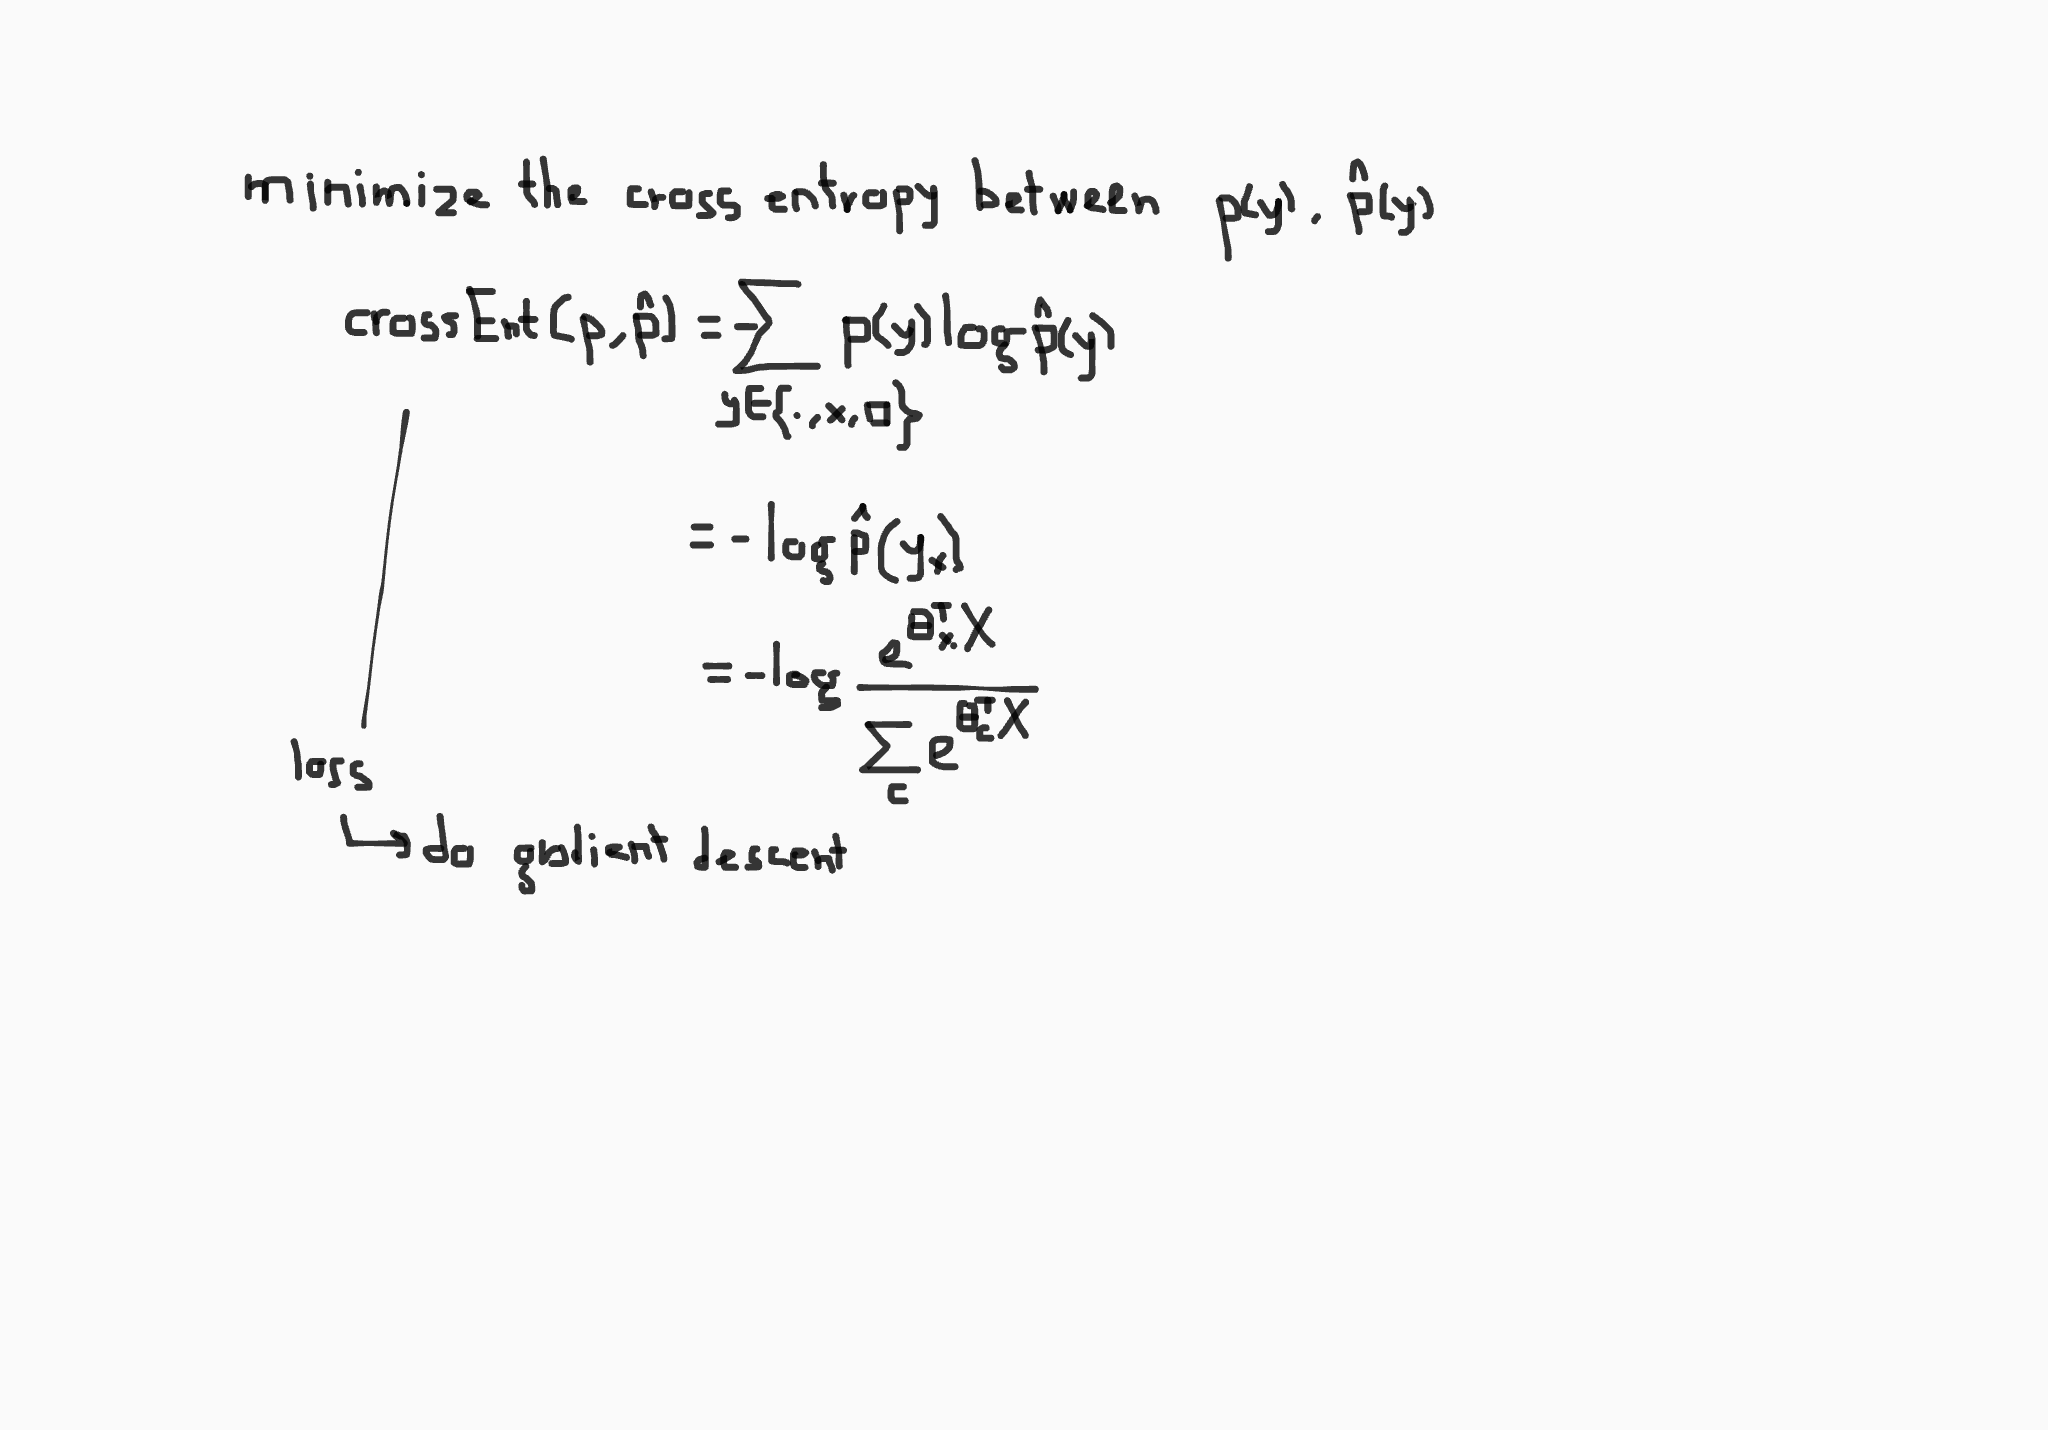 minimize the cross entropy between p(y), p̂(y)
crossEnt(p, p̂) = -∑ p(y) log p̂(y)
y∈{·, x, □}
= - log p̂(yₓ)
= - log e^(θₓᵀX) / ∑_c e^(θ_cᵀX)
loss
↳ do gradient descent